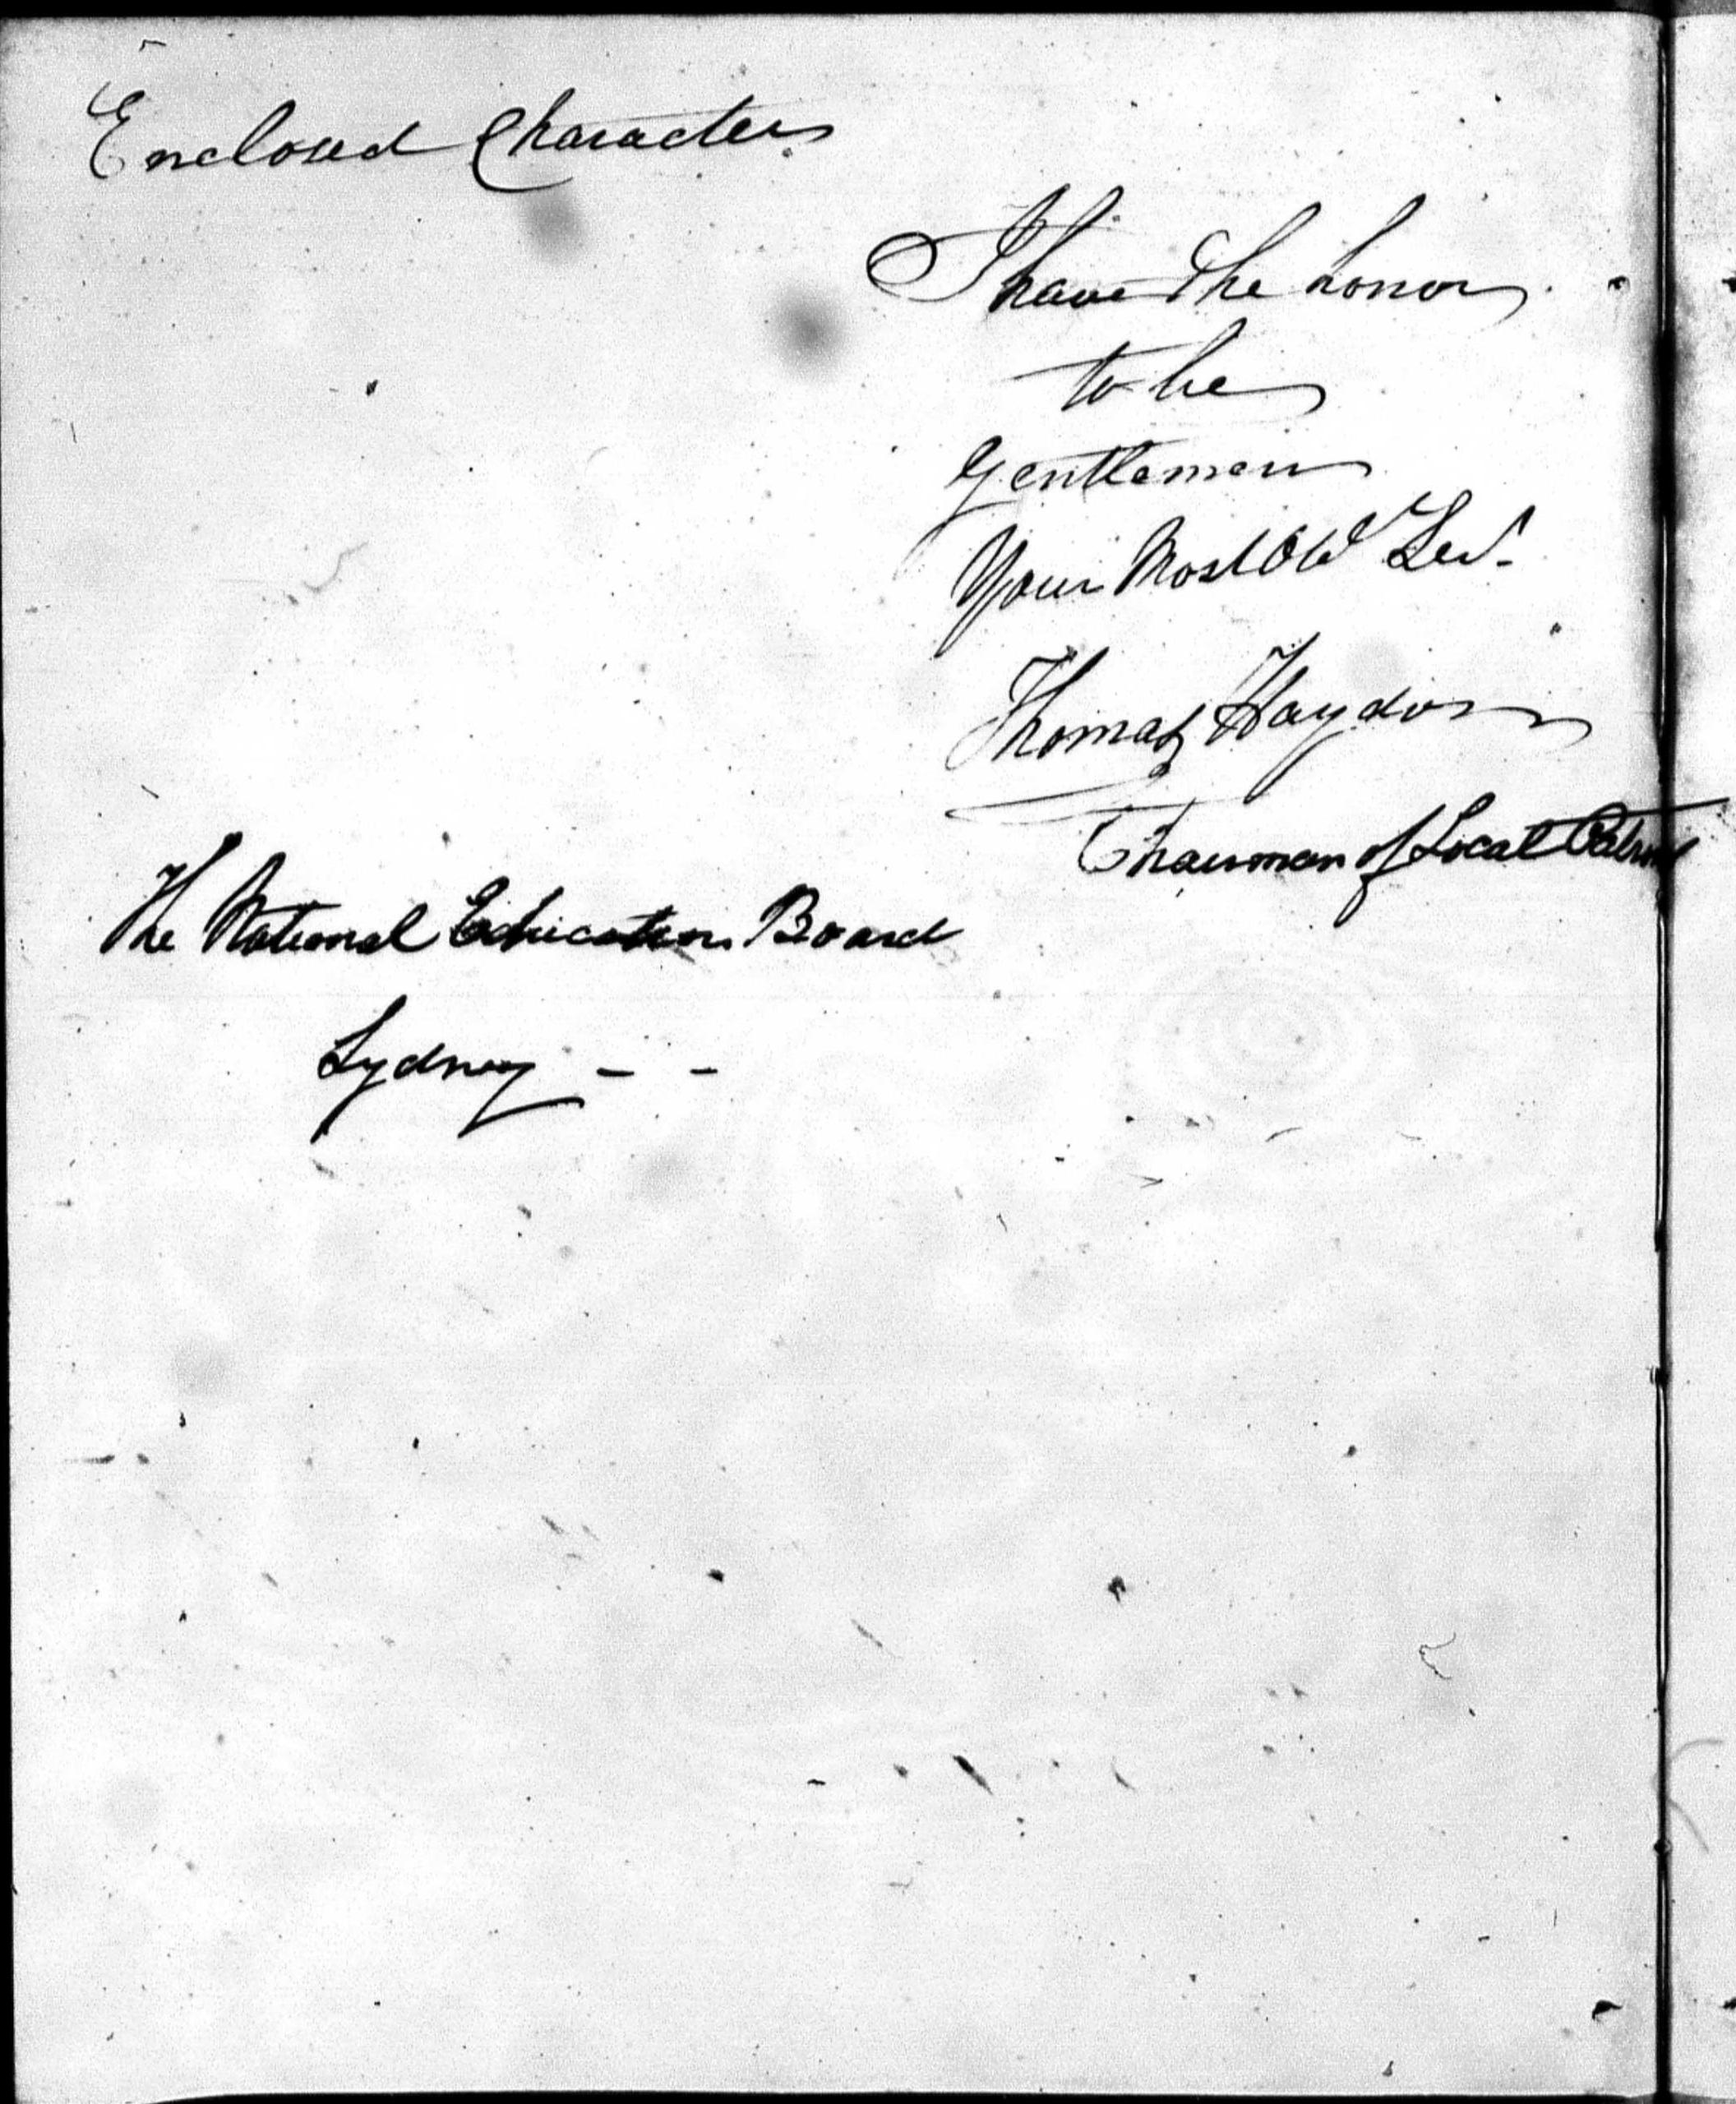 Enclosed Characters
I have the honor
to be
Gentlemen
Your Most Obt Sert
Thomas Haydon
Chairman of Local Patrons
The National Education Board
Sydney - -